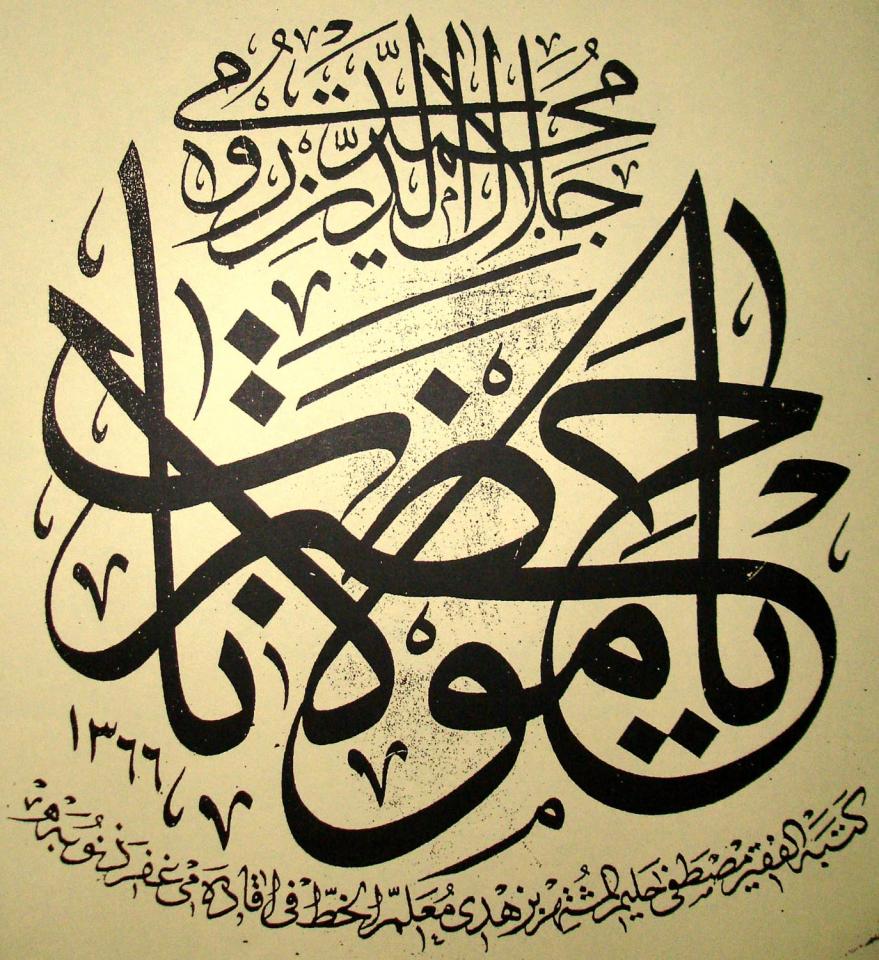 محمد جلال الدين رومي
يا حضرت مولانا
١٣٦٦
كتبه الفقير مصطفى حليم الشهير بزهدي معلم الخط في اقاده مي غفر ذنوبه